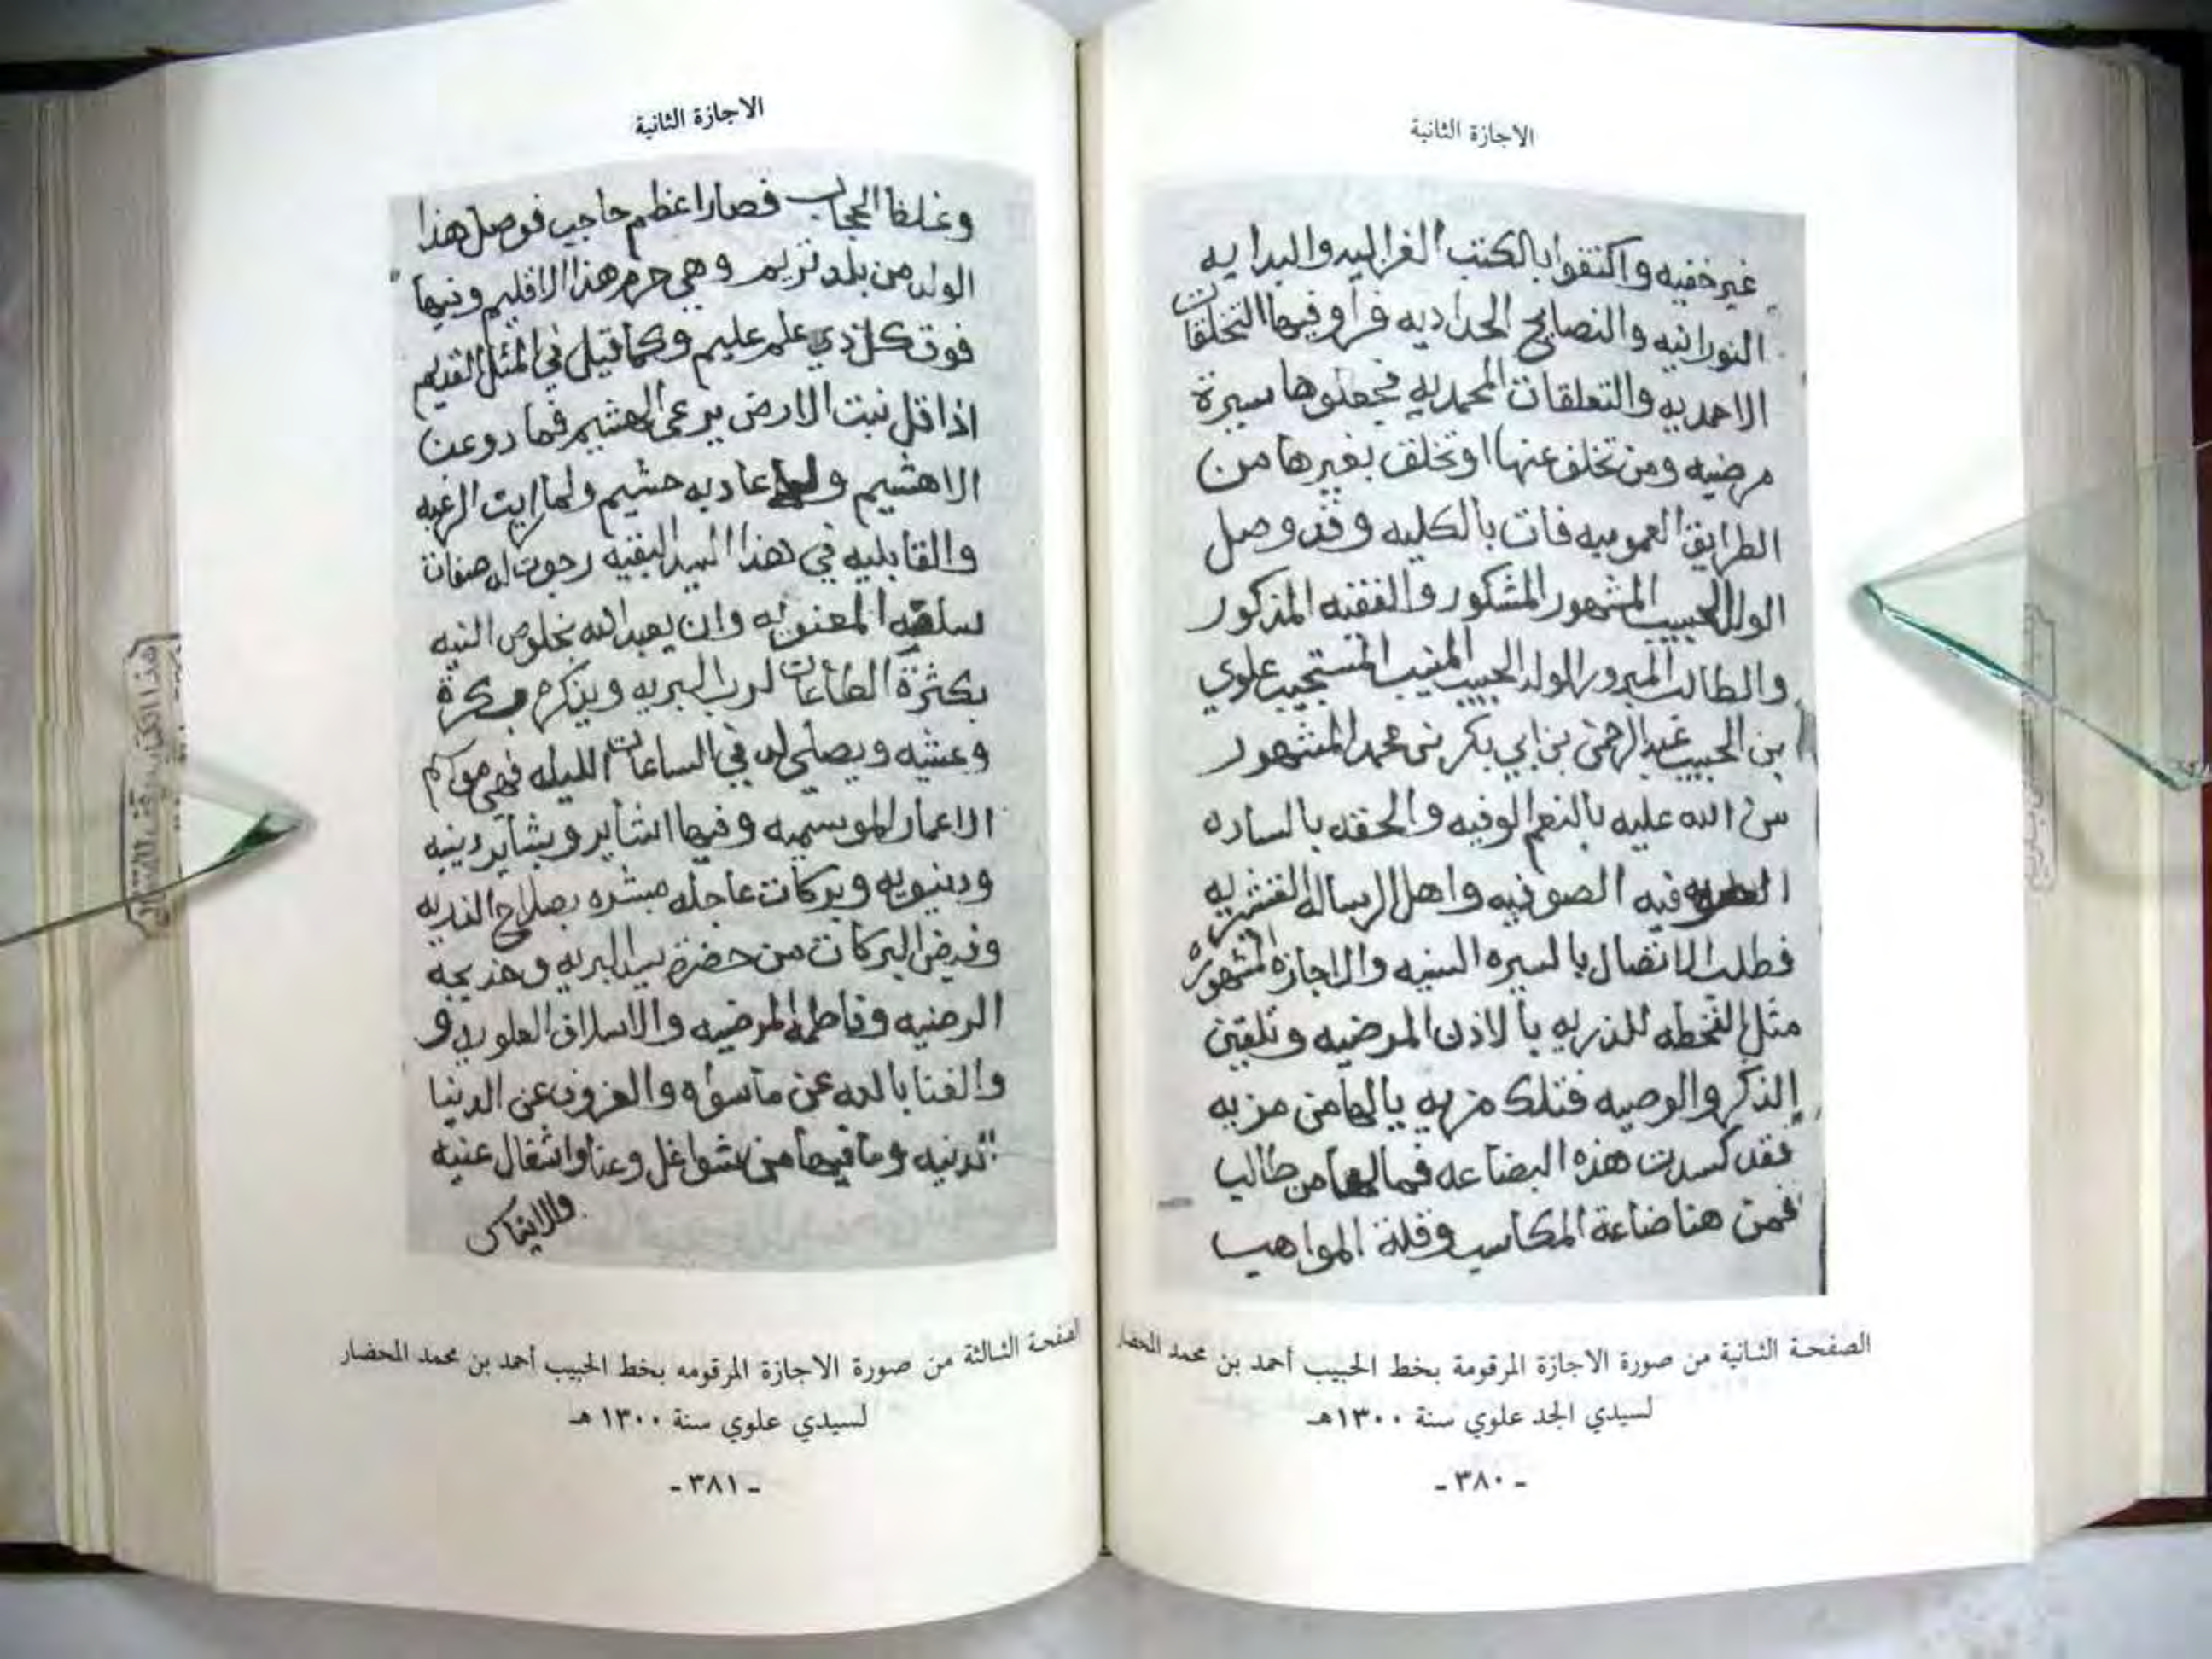 الاجازة الثانية
غير خفيه واكتفوا بالكتب الغزاليه والبدايه
النورانيه والنصايح الحداديه فرأوا فيها التخلقات
الاحمديه والتعلقات المحمديه فجعلوها سيرة
مرضيه ومن تخلف عنها او تخلق بغيرها من
الطرايق العموميه فات بالكليه وقد وصل
الولد الحبيب المشهور المشكور والفقيه المذكور
والطالب المبرور الولد الحبيب المنيب المستجيب علوي
بن الحبيب عبد الرحمن بن ابي بكر بن محمد المشهور
من الله عليه بالنعم الوفيه والحقه بالساده
الصوفيه واهل الرساله القشيريه
فطلب الاتصال بالسيره السنيه والاجازه المشهوره
مثل الخطه للذريه بالاذن المرضيه وتلقين
الذكر والوصيه فتلك مزيه يالها من مزيه
فقد كسدت هذه البضاعه فما لها من طالب
فمن هنا ضاعة المكاسب وقلة المواهب
الصفحة الثانية من صورة الاجازة المرقومة بخط الحبيب أحمد بن محمد المحضار
لسيدي الجد علوي سنة ١٣٠٠هـ
- ٣٨٠ -
الاجازة الثانية
وغلظ الحجاب فصار اعظم حاجب فوصل هذا
الولد من بلد تريم وهي حرم هذا الاقليم وفيها
فوق كل ذي علم عليم وكما قيل في المثل القديم
اذا قل نبت الارض يرعى الهشيم فما دوعن
الا هشيم عاديه حشيم ولما رايت الرغبه
والقابليه في هذا السيد البقيه رجوت له صفات
سلفه المعنويه وان يعبد الله بخلوص النيه
بكثرة الطاعات لرب البريه ويذكره بكرة
وعشيه ويصلي له في الساعات الليله فهي مواسم
الاعمار الموسميه وفيها اشاير وبشاير دينيه
ودنيويه وبركات عاجله مبشره بصلاح الذريه
وفيض البركات من حضرة سيد البريه وخديجه
الرضيه وفاطمه المرضيه والاسلاف العلويه و
والغنا بالله عن ما سواه والعزوف عن الدنيا
الدنيه وما فيها من شواغل وعنا واشغال عنيه
والانهماك
الصفحة الثالثة من صورة الاجازة المرقومه بخط الحبيب أحمد بن محمد المحضار
لسيدي علوي سنة ١٣٠٠ هـ
- ٣٨١ -